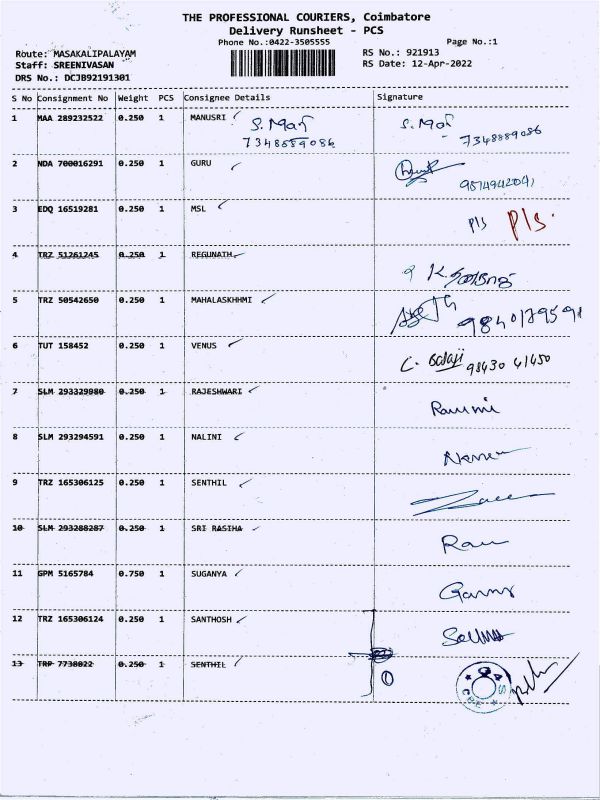 THE PROFESSIONAL COURIERS, Coimbatore
Delivery Runsheet - PCS
Phone No.:0422-3505555
Page No.:1
Route: MASAKALIPALAYAM
RS No.: 921913
Staff: SREENIVASAN
RS Date: 12-Apr-2022
DRS No.: DCJB92191301
S No Consignment No Weight PCS Consignee Details Signature
1 MAA 289232522 0.250 1 MANUSRI
7348889086
2 NDA 700016291 0.250 1 GURU
3 EDQ 16519281 0.250 1 MSL P/s P/s.
4 TRZ 51261245 0.250 1 REGUNATH
5 TRZ 50542650 0.250 1 MAHALASKHHMI
6 TUT 158452 0.250 1 VENUS C. Balaji 98430 41450
7 SLM 293329980 0.250 1 RAJESHWARI
8 SLM 293294591 0.250 1 NALINI
9 TRZ 165306125 0.250 1 SENTHIL
10 SLM 293288287 0.250 1 SRI RASIHA
11 GPM 5165784 0.750 1 SUGANYA
12 TRZ 165306124 0.250 1 SANTHOSH
13 TRP 7738022 0.250 1 SENTHIL